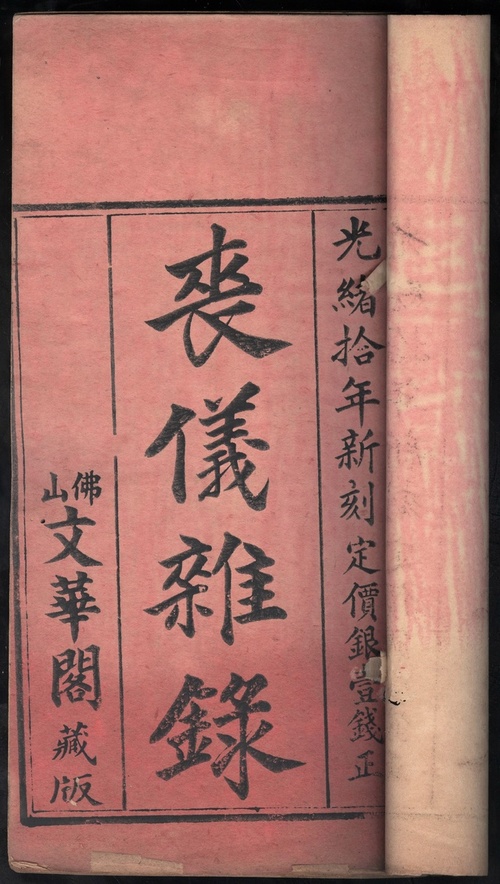 光緒拾年新刻定價銀壹錢正
喪儀雜錄
佛山
文華閣藏版